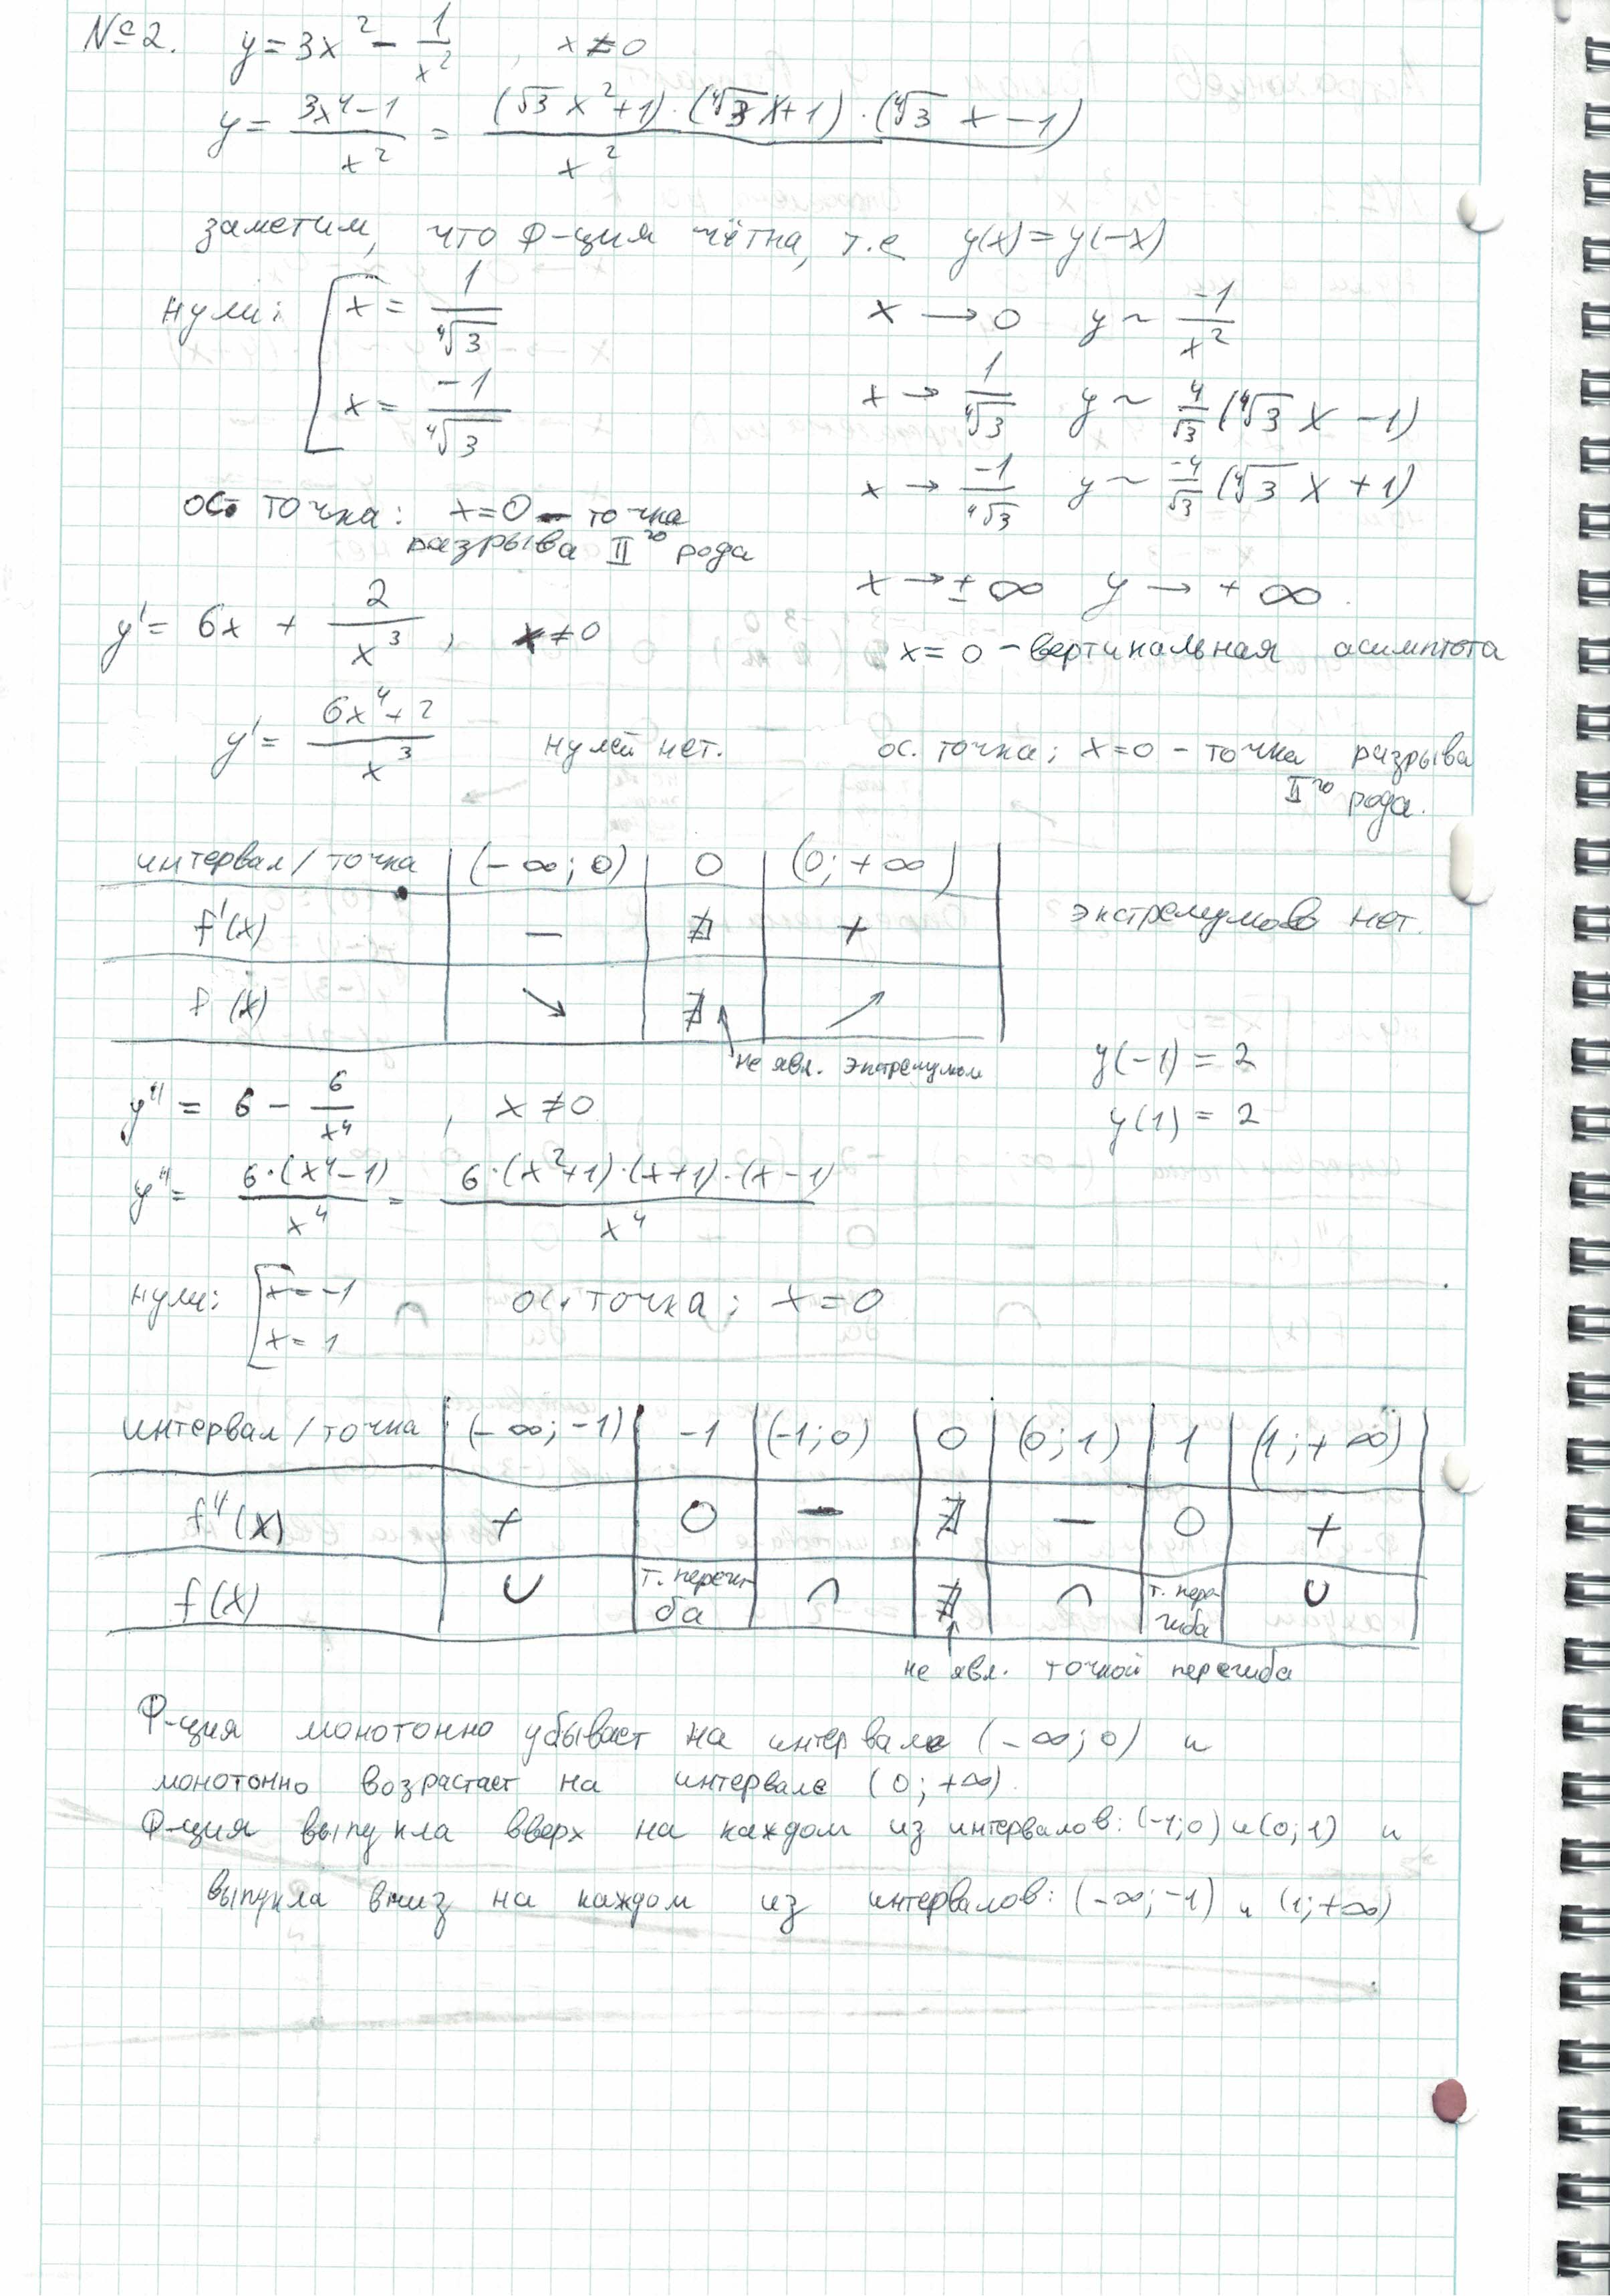 №2. y = 3x² - 1/x² , x ≠ 0
y = (3x⁴-1)/x² = ((√3 x²+1)·(⁴√3 x+1)·(⁴√3 x-1))/x²
заметим, что ф-ция чётна, т.е y(x)=y(-x)
нули: [ x = 1/⁴√3
x = -1/⁴√3
x → 0 y ~ -1/x²
x → 1/⁴√3 y ~ 4/√3 (⁴√3 x - 1)
x → -1/⁴√3 y ~ -4/√3 (⁴√3 x + 1)
x → ±∞ y → +∞.
ос. точка: x=0 - точка
разрыва II го рода
x=0 - вертикальная асимптота
y' = 6x + 2/x³ , x ≠ 0
y' = (6x⁴+2)/x³ нулей нет. ос. точка; x=0 - точка разрыва
II го рода.
интервал/точка | (-∞; 0) | 0 | (0; +∞) |
f'(x) | − | ∄ | + |
f(x) | ↘ | ∄ | ↗ |
не явл. экстремумом
экстремумов нет.
y(-1) = 2
y(1) = 2
y'' = 6 - 6/x⁴ , x ≠ 0
y'' = 6·(x⁴-1)/x⁴ = 6·(x²+1)·(x+1)·(x-1)/x⁴
нули: [ x = -1
x = 1
ос. точка; x=0
интервал/точка | (-∞; -1) | -1 | (-1; 0) | 0 | (0; 1) | 1 | (1; +∞) |
f''(x) | + | 0 | − | ∄ | − | 0 | + |
f(x) | ∪ | т. перегиба | ∩ | ∄ | ∩ | т. перегиба | ∪ |
не явл. точкой перегиба
Ф-ция монотонно убывает на интервале (-∞; 0) и
монотонно возрастает на интервале (0; +∞).
Ф-ция выпукла вверх на каждом из интервалов: (-1; 0) и (0; 1) и
выпукла вниз на каждом из интервалов: (-∞; -1) и (1; +∞)